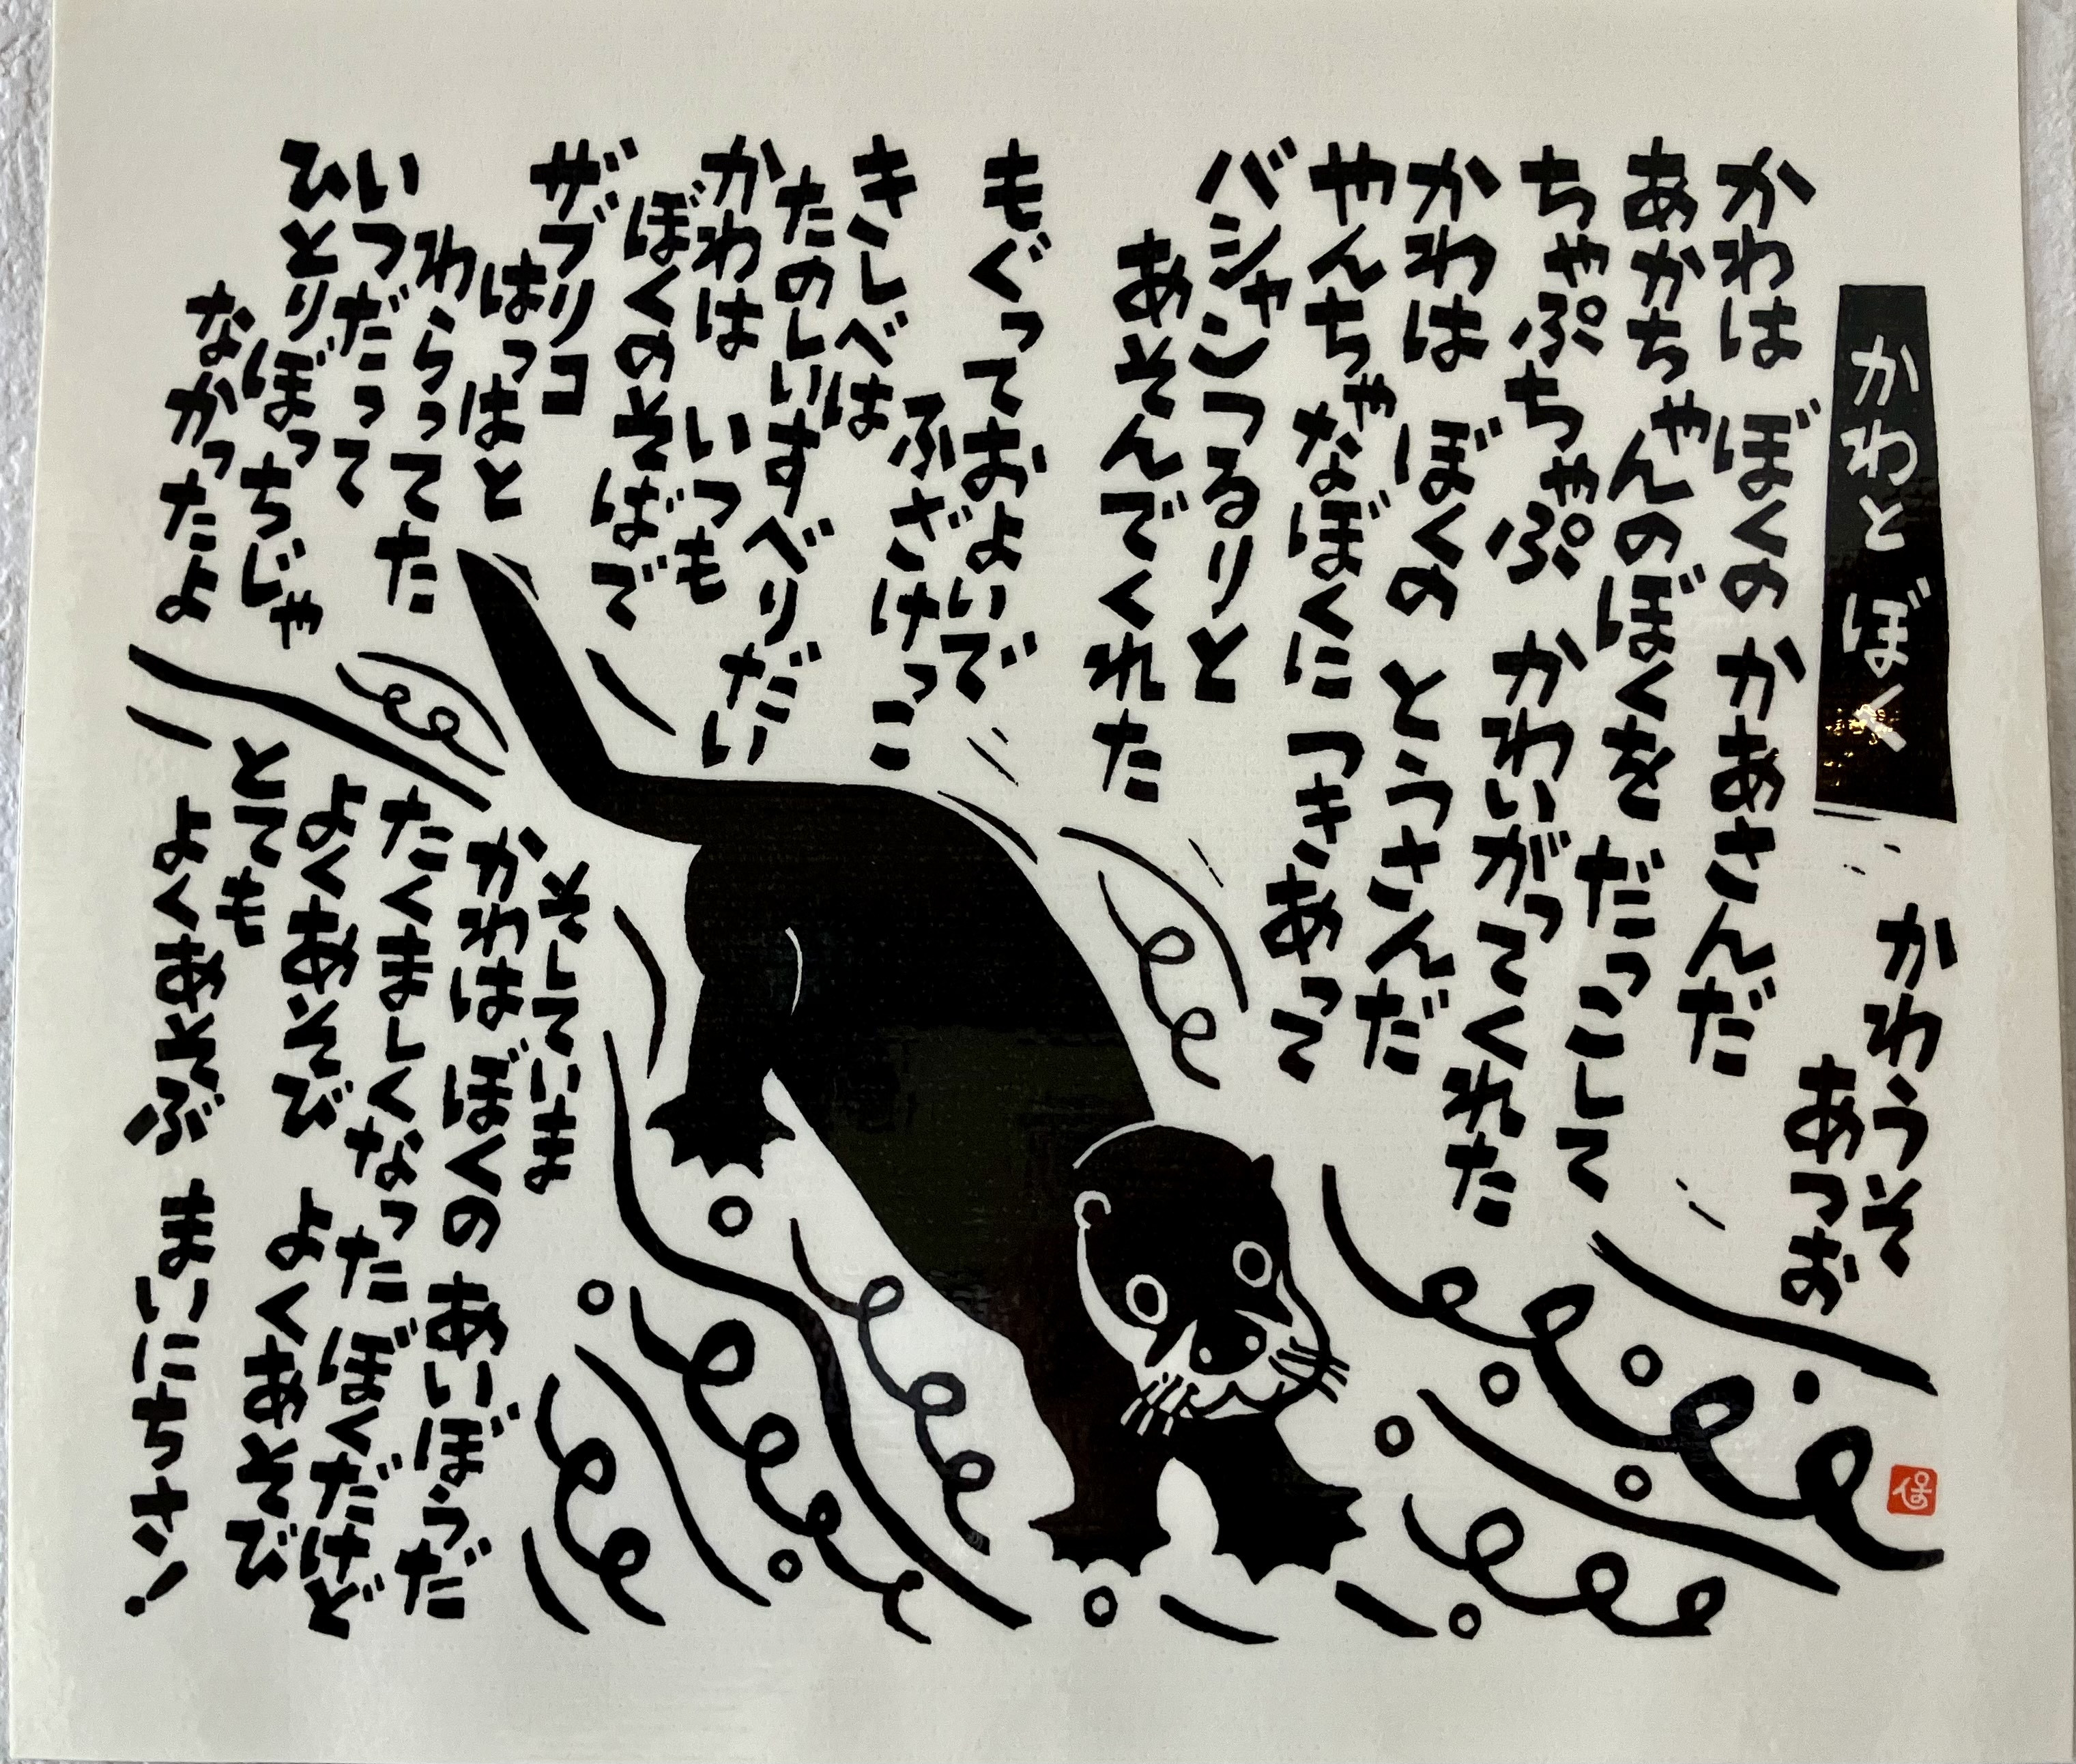 かわと ぼく
かわうそ
あつお
かわは ぼくの かあさんだ
あかちゃんのぼくを だっこして
ちゃぷちゃぷ かわいがってくれた
かわは ぼくの とうさんだ
やんちゃなぼくに つきあって
バシャンつるりと
あそんでくれた
もぐっておよいで
ふざけっこ
きしべは
たのしいすべりだい
かわは いつも
ぼくのそばで
ザブリコ
はっはと
わらってた
いつだって
ひとりぼっちじゃ
なかったよ
そしていま
かわは ぼくの あいぼうだ
たくましくなった ぼくだけど
よくあそび よくあそび
とても
よくあそぶ まいにちさ!